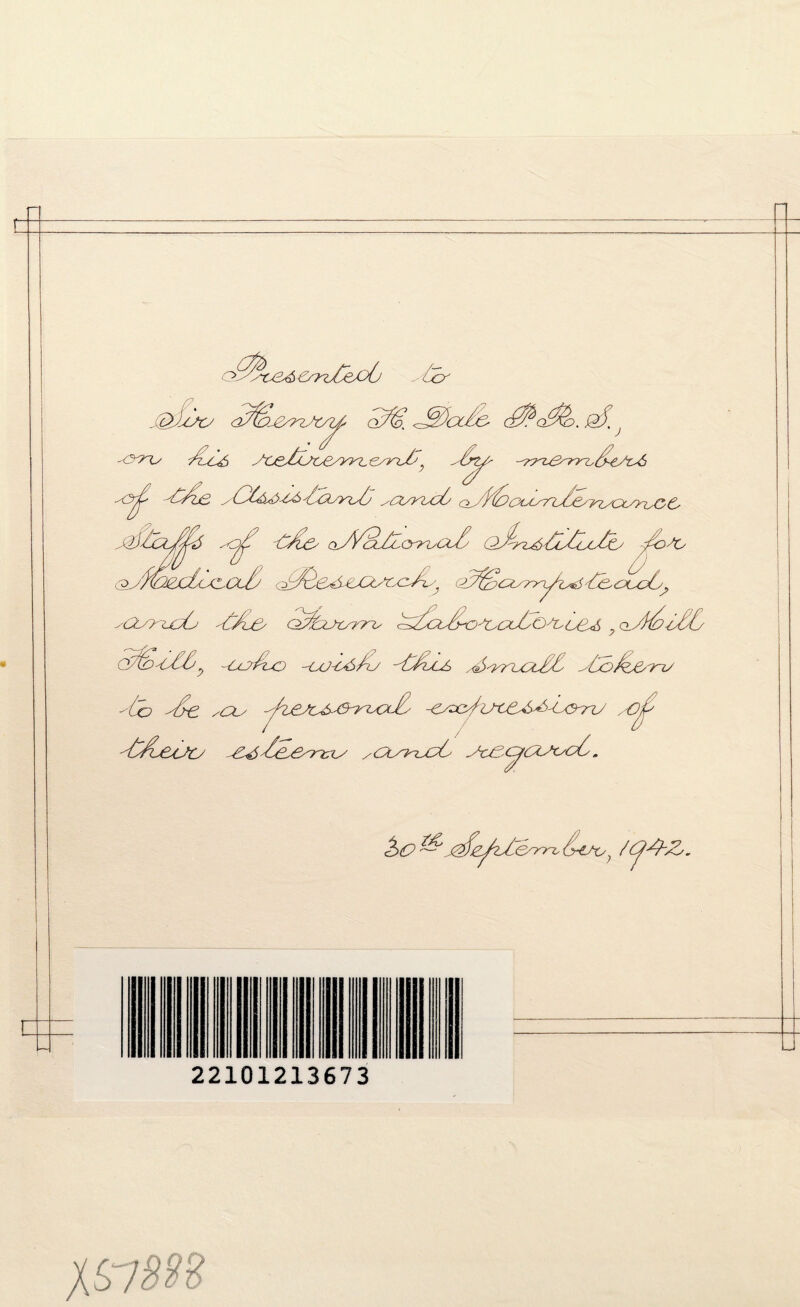 Presented to
Sir Henry H. Dale P.R.S.,
on his retirement, by members
of the Assistant and Maintenance
Staffs of the National Institute for
Medical Research, Hampstead,
and the Farm Laboratories, Mill
Hill, who wish this small token
to be a personal expression of
their esteem and regard.
30th September, 1942.
22101213673
X57888